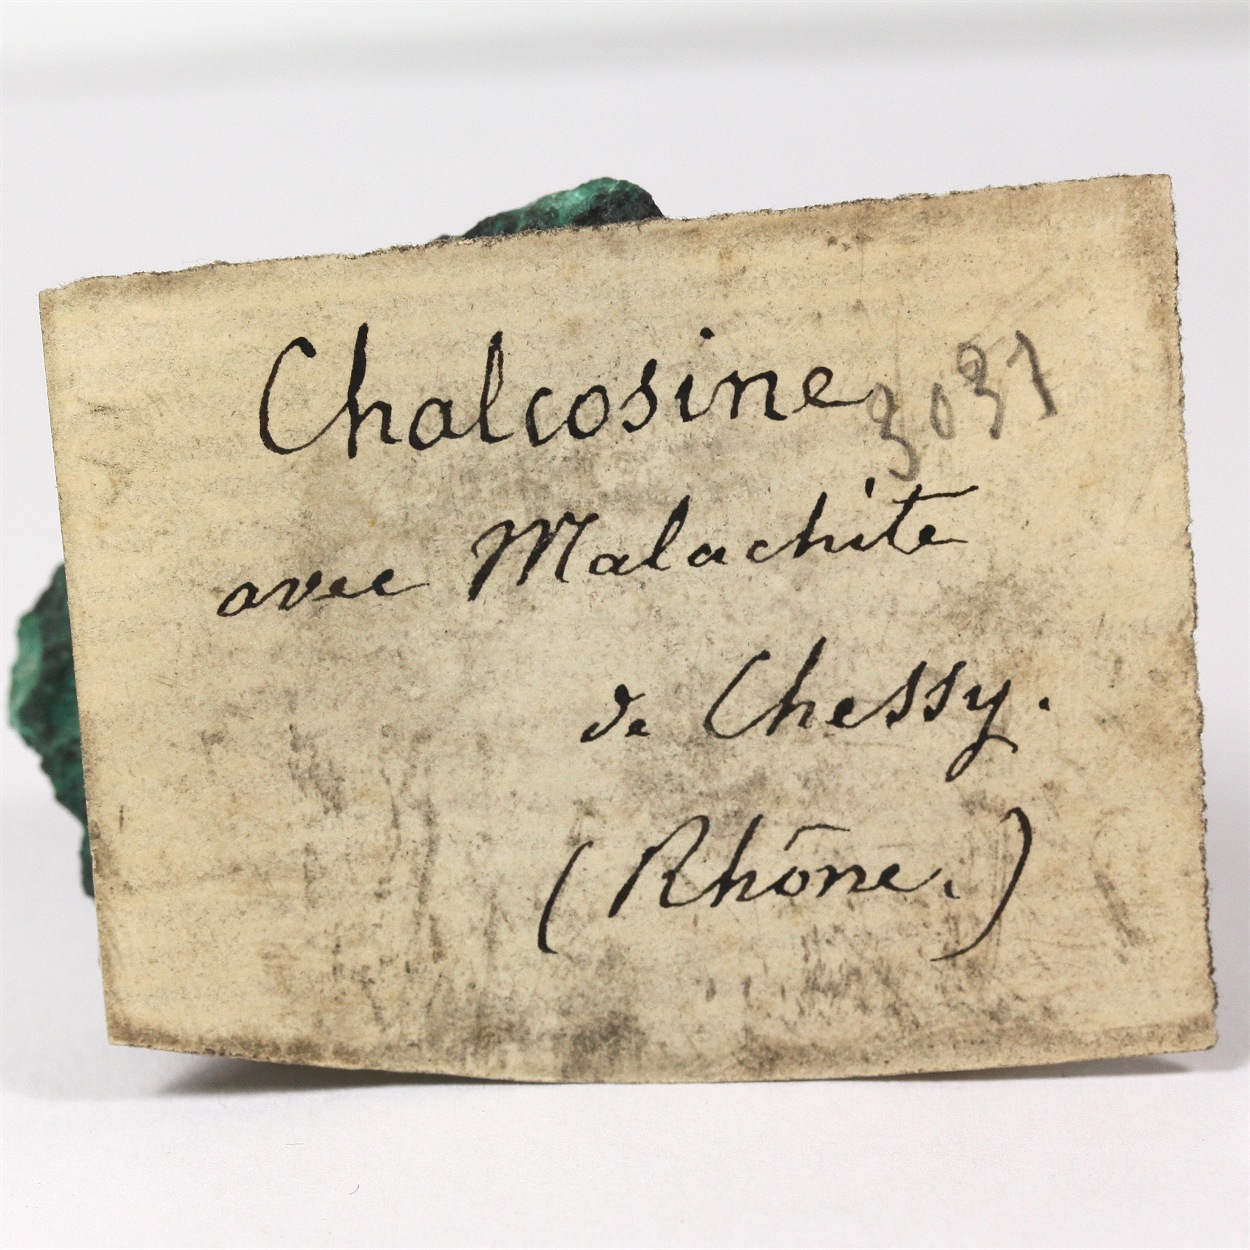 Chalcosine 3031
avec Malachite
de Chessy.
(Rhône.)